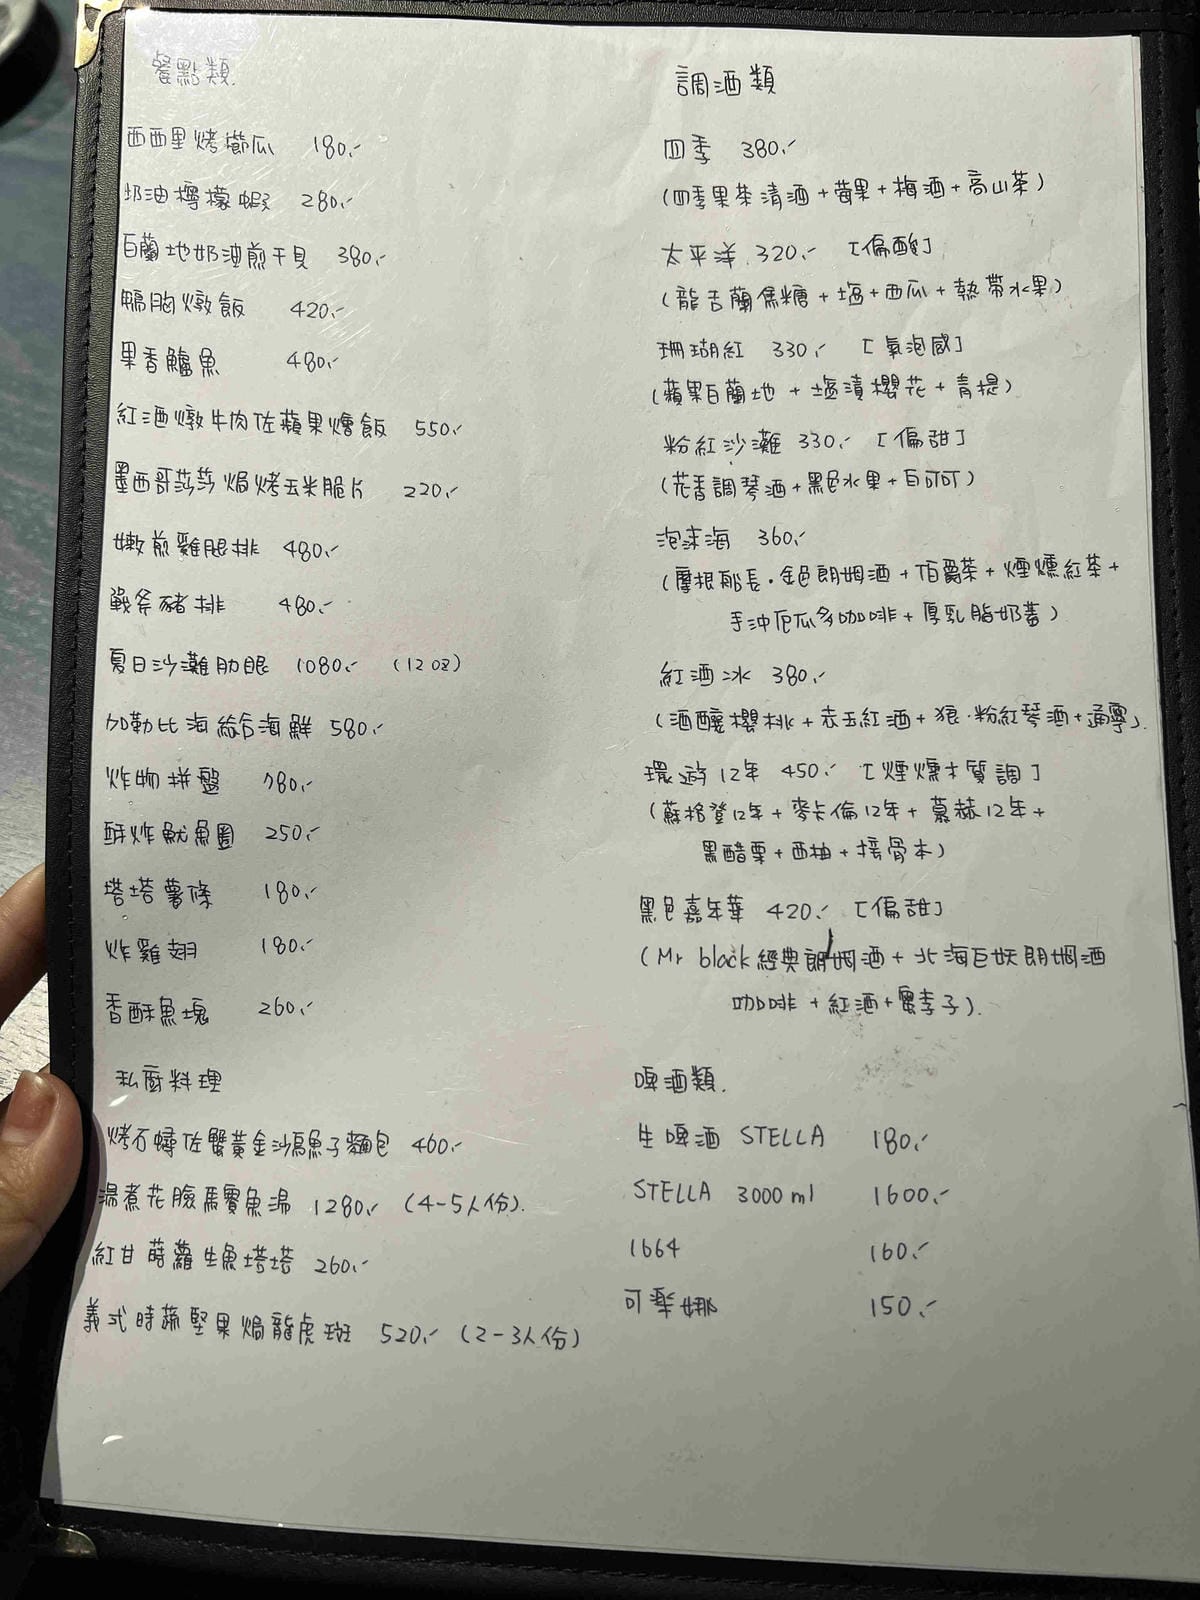 餐點類.
西西里烤櫛瓜 180.-
奶油檸檬蝦 280.-
白蘭地奶油煎干貝 380.-
鴨胸燉飯 420.-
果香鱸魚 480.-
紅酒燉牛肉佐蘋果燴飯 550.-
墨西哥莎莎焗烤玉米脆片 220.-
嫩煎雞腿排 480.-
戰斧豬排 480.-
夏日沙灘肋眼 1080.- (12oz)
加勒比海綜合海鮮 580.-
炸物拼盤 780.-
酥炸魷魚圈 250.-
塔塔薯條 180.-
炸雞翅 180.-
香酥魚塊 260.-
私廚料理
烤石蟳佐蟹黃金沙烏魚子麵包 460.-
湯煮花臉馬賽魚湯 1280.- (4-5人份).
紅甘蒔蘿生魚塔塔 260.-
義式時蔬堅果焗龍虎斑 520.- (2-3人份)
調酒類
四季 380.-
(四季果茶清酒+莓果+梅酒+高山茶)
太平洋 320.- [偏酸]
(龍舌蘭焦糖+塩+西瓜+熱帶水果)
珊瑚紅 330.- [氣泡感]
(蘋果白蘭地+塩漬櫻花+青提)
粉紅沙灘 330.- [偏甜]
(花香調琴酒+黑色水果+白可可)
泡沫海 360.-
(摩根船長·金色朗姆酒+伯爵茶+煙燻紅茶+
手沖厄瓜多咖啡+厚乳脂奶蓋)
紅酒冰 380.-
(酒釀櫻桃+赤玉紅酒+狼·粉紅琴酒+通寧).
環遊12年 450.- [煙燻木質調]
(蘇格登12年+麥卡倫12年+慕赫12年+
黑醋栗+西柚+接骨木)
黑色嘉年華 420.- [偏甜]
(Mr black經典朗姆酒+北海巨妖朗姆酒
咖啡+紅酒+蜜李子).
啤酒類.
生啤酒 STELLA 180.-
STELLA 3000ml 1600.-
1664 160.-
可樂娜 150.-